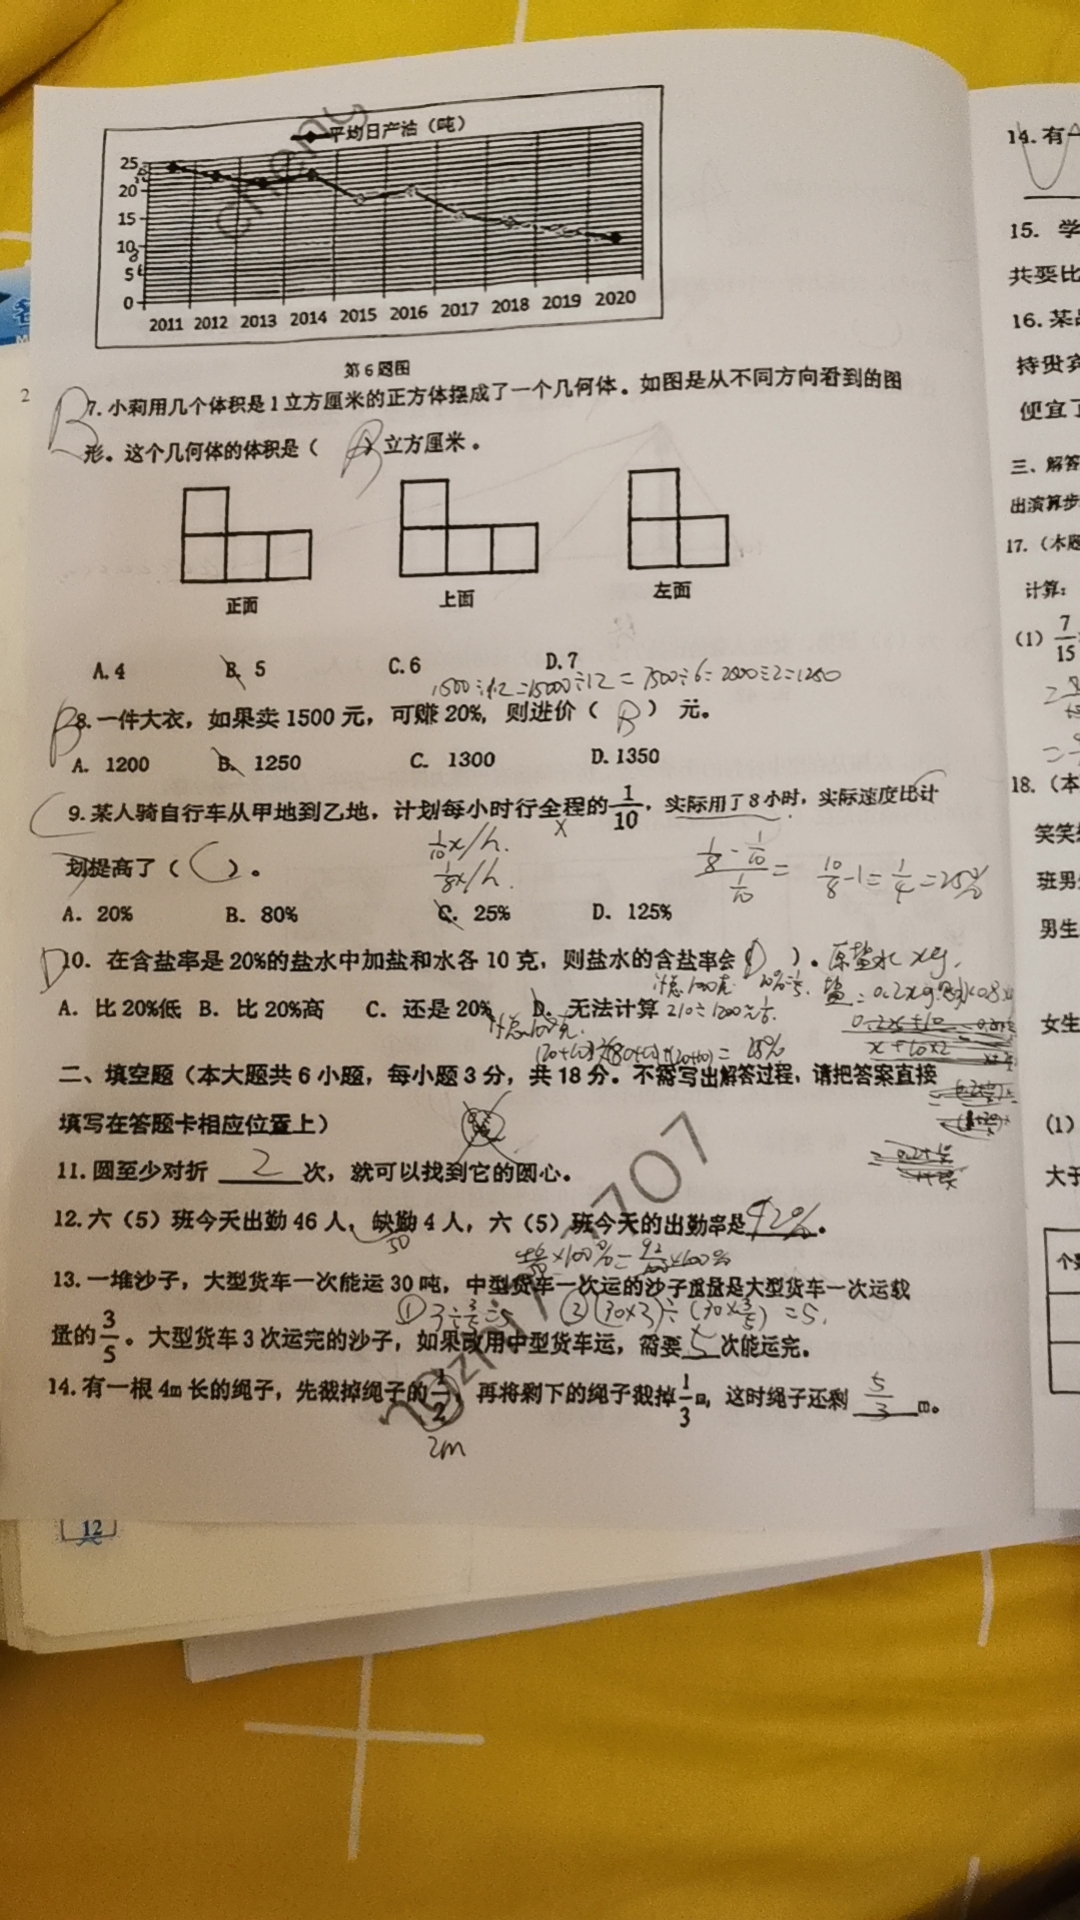 平均日产油（吨）
25
20
15
10
5
0
2011 2012 2013 2014 2015 2016 2017 2018 2019 2020
第6题图
2
B
7. 小莉用几个体积是1立方厘米的正方体摆成了一个几何体。如图是从不同方向看到的图
形。这个几何体的体积是（ B ）立方厘米。
正面 上面 左面
A. 4 B. 5 C. 6 D. 7
1500÷1.2=15000÷12=7500÷6=2500÷2=1250
B
8. 一件大衣，如果卖1500元，可赚20%，则进价（ B ）元。
A. 1200 B. 1250 C. 1300 D. 1350
C
9. 某人骑自行车从甲地到乙地，计划每小时行全程的1/10，实际用了8小时，实际速度比计
x
1/10x/h.
划提高了（ C ）。
1/8x/h.
(1/8-1/10)/(1/10)= 10/8-1=1/4=25%
A. 20% B. 80% C. 25% D. 125%
D
10. 在含盐率是20%的盐水中加盐和水各10克，则盐水的含盐率会（ D ）。原盐水xg.
A. 比20%低 B. 比20%高 C. 还是20% D. 无法计算
二、填空题（本大题共6小题，每小题3分，共18分。不需写出解答过程，请把答案直接
填写在答题卡相应位置上）
11. 圆至少对折 2 次，就可以找到它的圆心。
12. 六（5）班今天出勤46人，缺勤4人，六（5）班今天的出勤率是92%。
50
13. 一堆沙子，大型货车一次能运30吨，中型货车一次运的沙子质量是大型货车一次运载
①3÷3/5=5 ②(30×3)÷(30×3/5)=5.
量的3/5。大型货车3次运完的沙子，如果改用中型货车运，需要 5 次能运完。
14. 有一根4m长的绳子，先截掉绳子的1/2，再将剩下的绳子截掉1/3m，这时绳子还剩 5/3 m。
2m
12
14. 有一
15. 学
共要比
16. 某品
持贵宾
便宜了
三、解答
出演算步
17.（本题
计算：
(1) 7/15
18.（本
笑笑
班男
男生
女生
(1)
大于
个